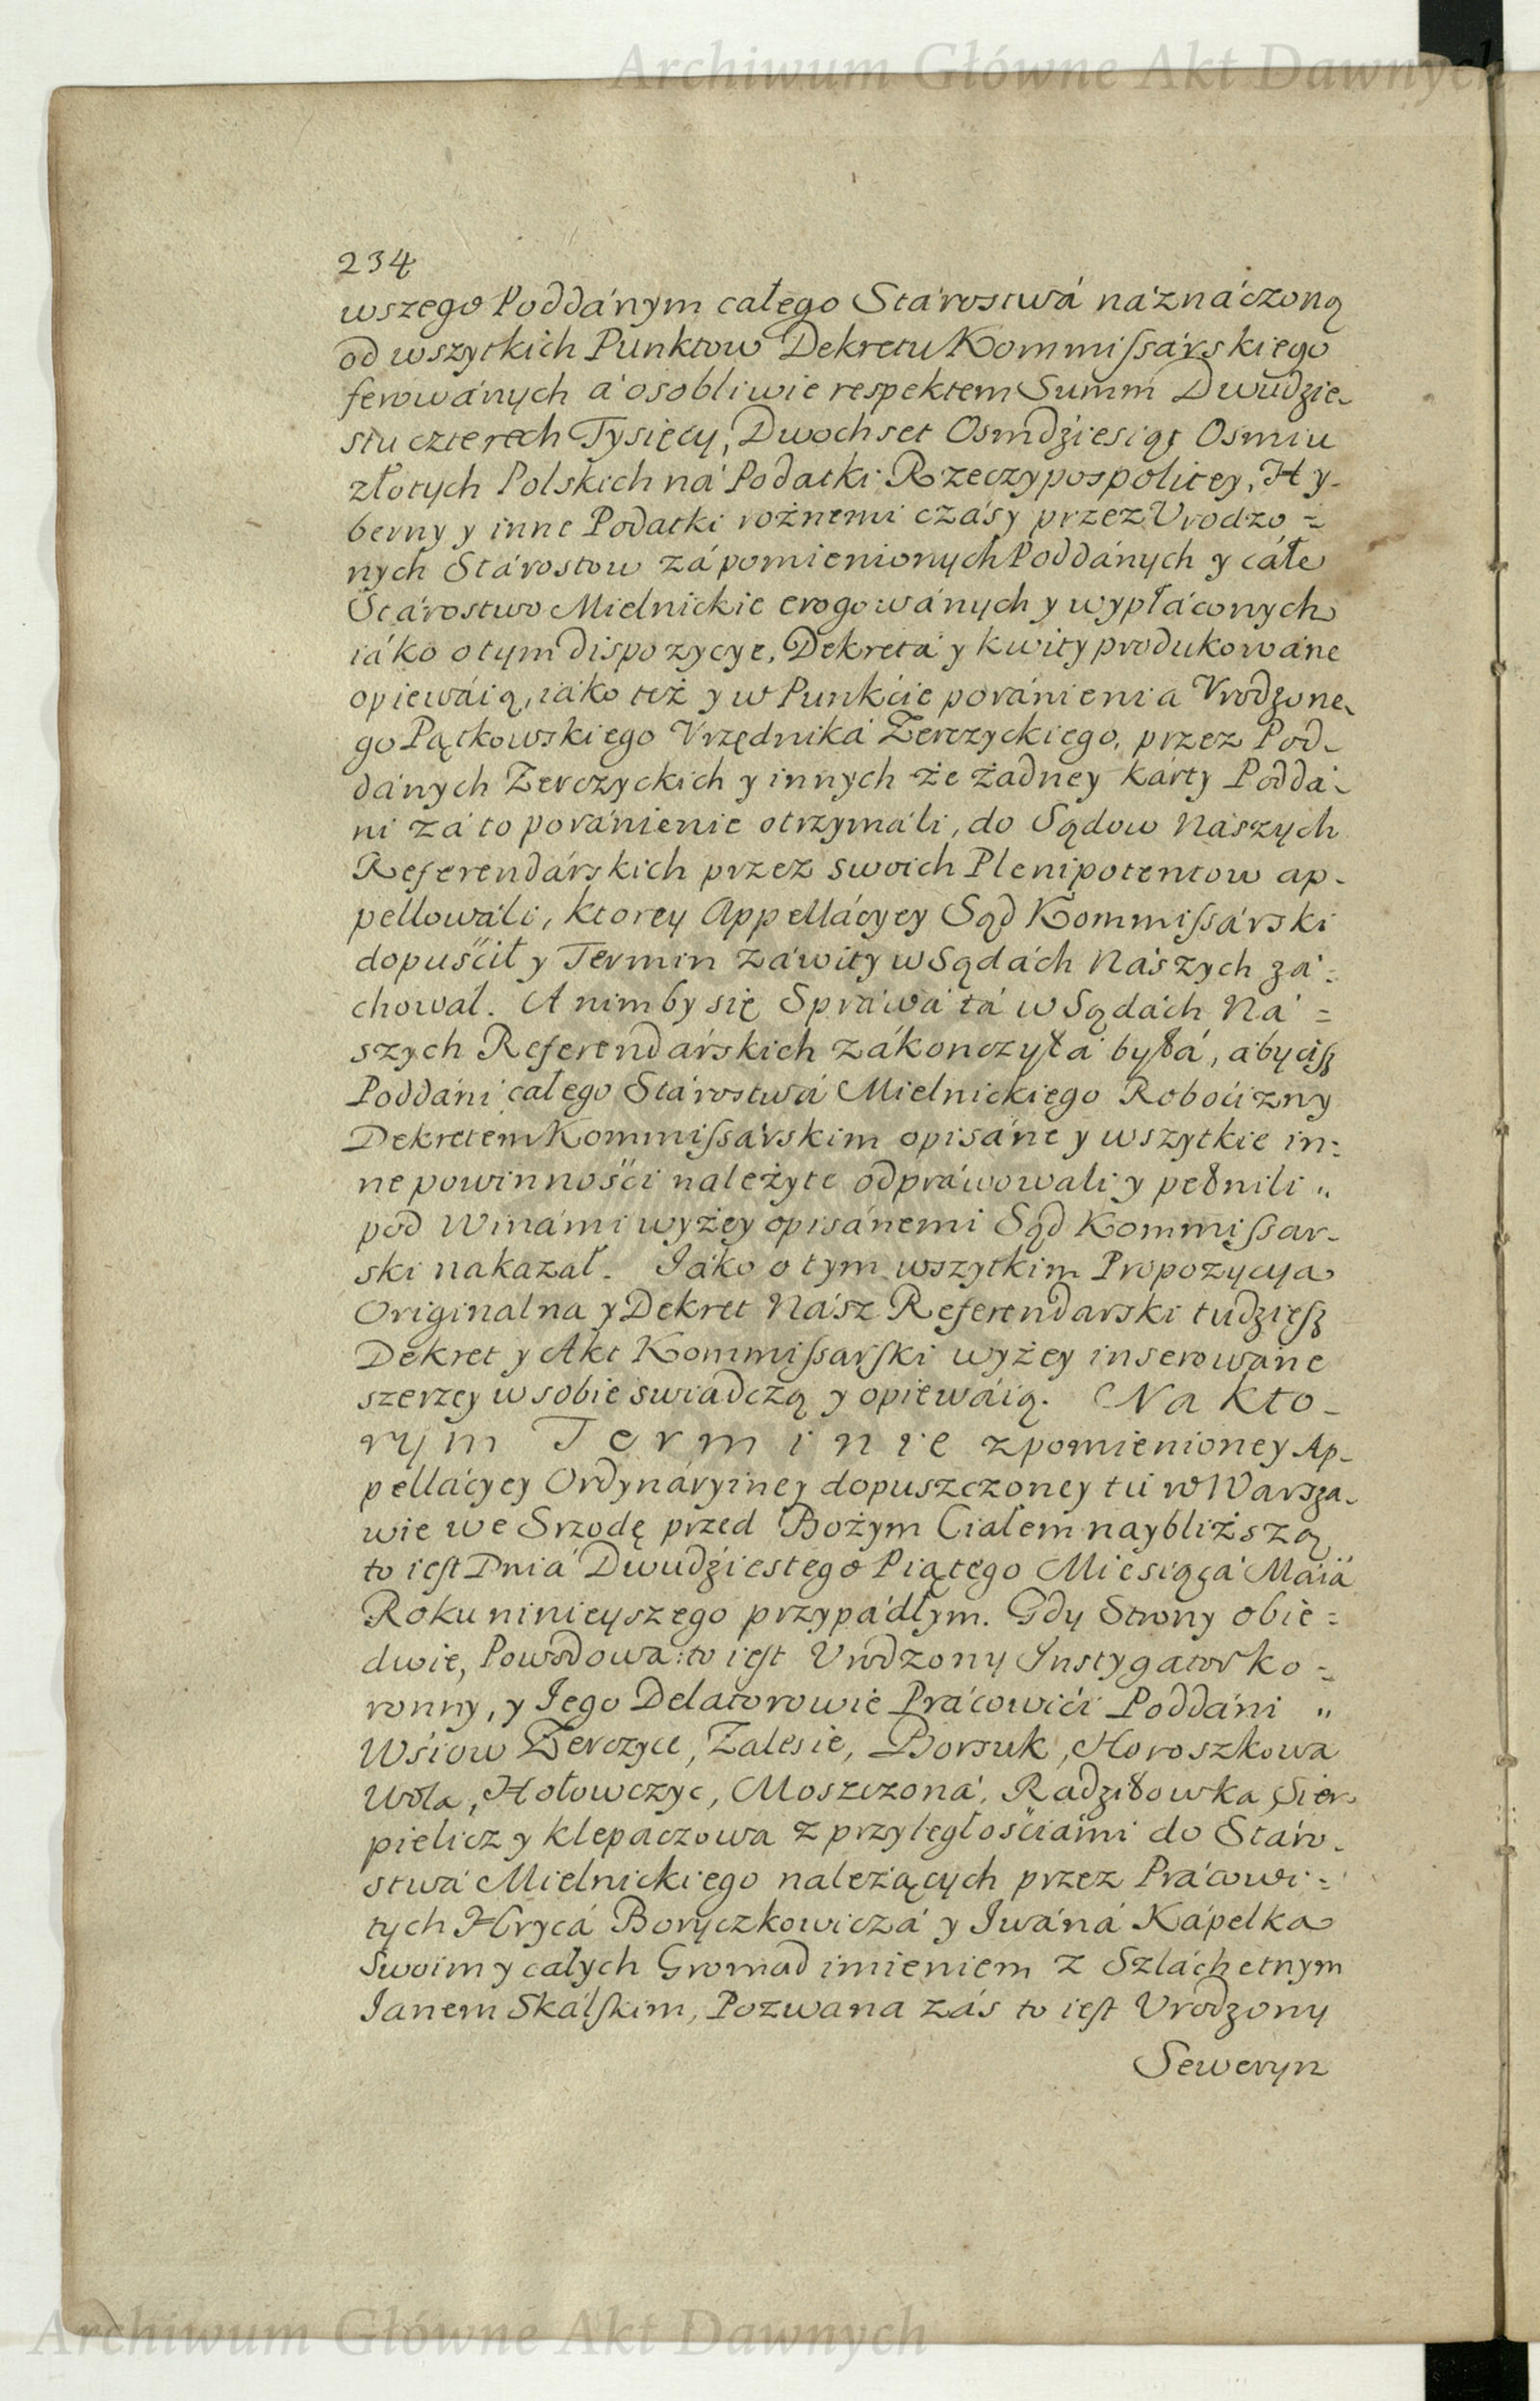 Archiwum Główne Akt Dawnych
234
wszego Poddánym całego Stárostwá náznáczoną
od wszytkich Punktow Dekretu Kommiſsárskiego
ferowánych á osobliwie respektem Summ Dwudzie-
stu czterech Tysięcy, Dwochset Osmdziesiąt Osmiu
złotych Polskich ná Podatki Rzeczypospolitey, Hy-
berny y inne Podatki rożnemi czásy przez Vrodzo=
nych Stárostow zá pomienionych Poddánych y cáłe
Stárostwo Mielnickie erogowánych y wypłáconych
iáko o tym dispozycye, Dekretá y kwity produkowáne
opiewáią, iáko też y w Punkćie poránienia Vrodzone-
go Pątkowskiego Vrzędniká Zerczyckiego, przez Pod-
dánych Zerczyckich y innych że żadney kárty Poddá-
ni zá to poránienie otrzymáli, do Sądow Nászych
Referendárskich przez swoich Plenipotentow ap-
pellowáli, ktorey Appellácyey Sąd Kommiſsárski
dopuśćił y Termin záwity w Sądách Nászych zá=
chował. A nim by się Spráwá tá w Sądách Ná=
szych Referendárskich zákonczyłá byłá, ábyciſz
Poddáni całego Stárostwá Mielnickiego Roboćizny
Dekretem Kommiſsárskim opisáne y wszytkie in=
ne powinnośći należyte odpráwowali y pełnili "
pod Winámi wyżey opisánemi Sąd Kommiſsar-
ski nakazał. Iáko o tym wszytkim Propozycya
Originalna y Dekret Nász Referendarski tudzieſz
Dekret y Akt Kommiſsarſki wyżey inserowáne
szerzey w sobie swiadczą y opiewáią. Na kto-
rym Terminie z pomienioney Ap-
pellácyey Ordynáryiney dopuszczoney tu w Warsza-
wie we Srzodę przed Bożym Ciałem naybliższą
to ieſt Dniá Dwudźiestego Piątego Miesiąca Maiá
Roku ninieyszego przypádłym. Gdy Strony obie=
dwie, Powodowa: to ieſt Vrodzony Instygator ko=
ronny, y Iego Delatorowie Prácowići Poddáni "
Wśiow Zerczyce, Zalesie, Borsuk, Horoszkowa
Wola, Hołowczyc, Moszczoná, Radziłowka Sier-
pielicz y klepaczowa z przyległośćiámi do Stáro-
stwá Mielnickiego należących przez Prácowi=
tych Hrycá Boryczkowiczá y Iwáná Kápelka
Swoim y całych Gromad imieniem z Szláchetnym
Ianem Skálſkim, Pozwana zás to ieſt Vrodzony
Seweryn
Archiwum Główne Akt Dawnych